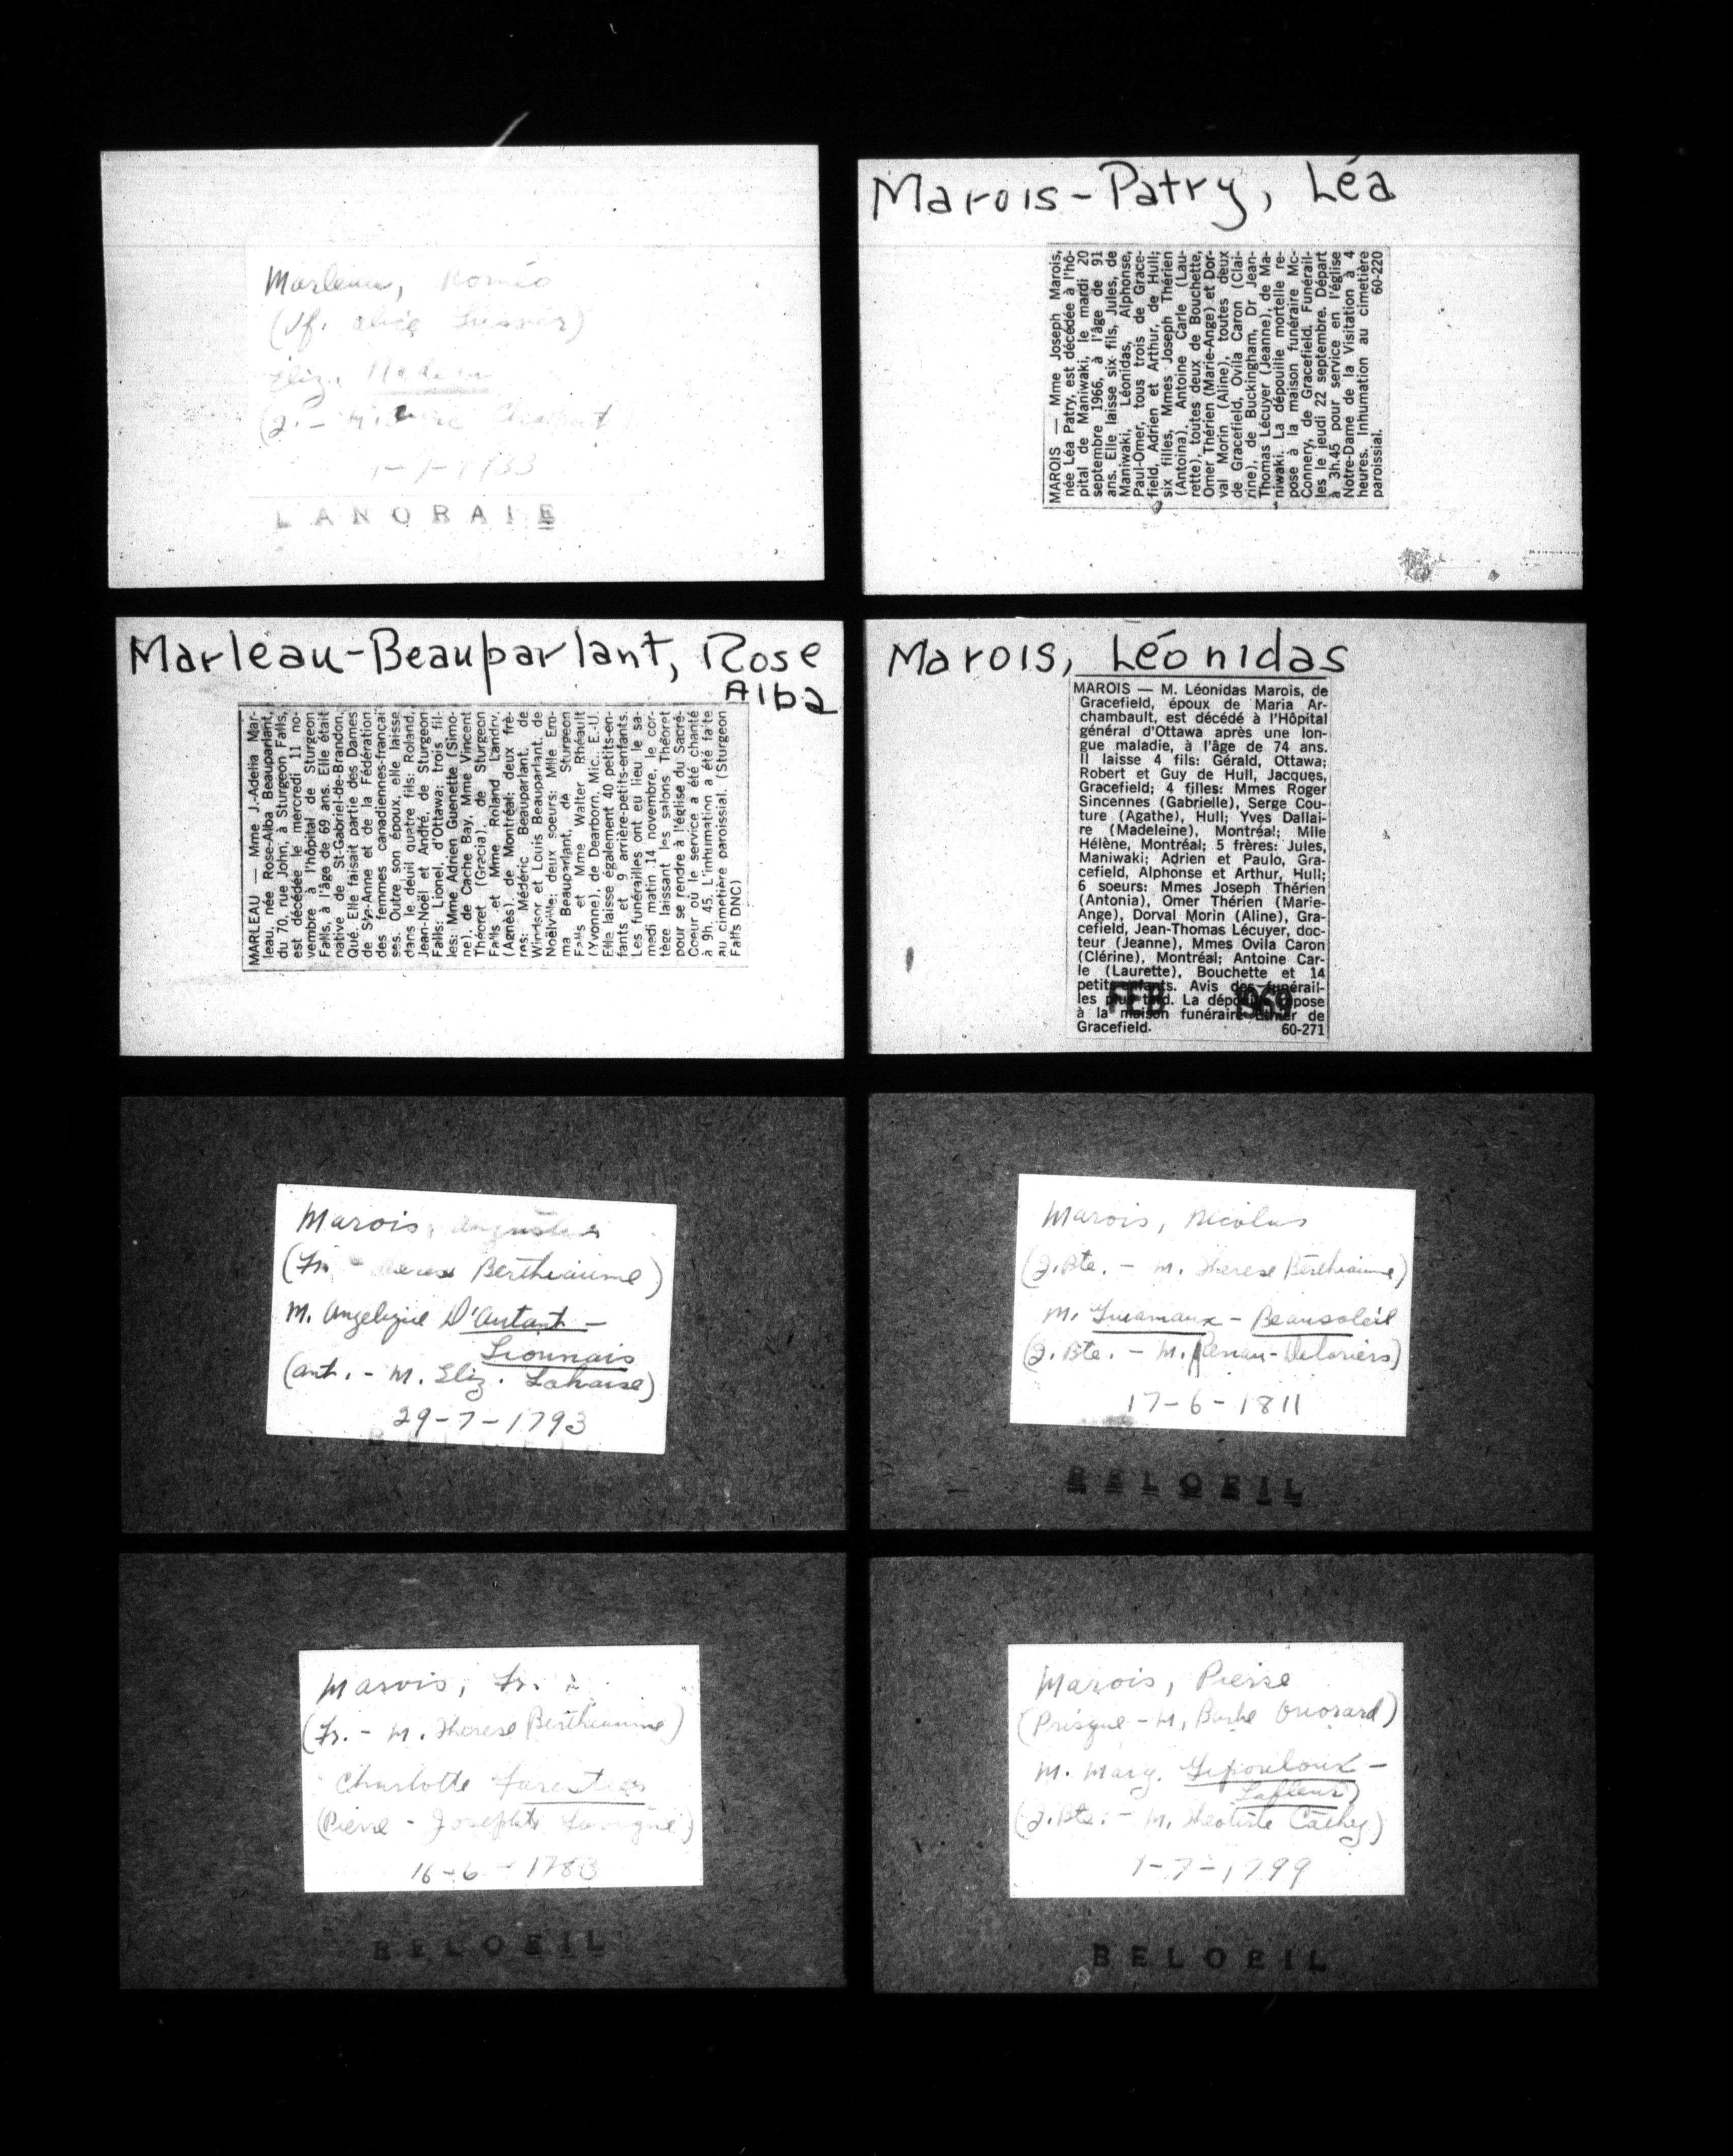 Marleau, Roméo
(Vf. Alice
Eliz.
(J. -
1-7-1933
LANORAIE
Marleau-Beauparlant, Rose
Alba
MARLEAU — Mme J.-Adelia Mar-
leau, née Rose-Alba Beauparlant,
du 70, rue John, à Sturgeon Falls,
est décédée le mercredi 11 no-
vembre à l'hôpital de Sturgeon
Falls, à l'âge de 69 ans. Elle était
native de St-Gabriel-de-Brandon,
Qué. Elle faisait partie des Dames
de Ste-Anne et de la Fédération
des femmes canadiennes-françai
ses. Outre son époux, elle laisse
dans le deuil quatre fils: Roland,
Jean-Noël et André, de Sturgeon
Falls; Lionel, d'Ottawa; trois fil-
les: Mme Adrien Guenette (Simo-
ne), de Cache Bay, Mme Vincent
Théoret (Gracia), de Sturgeon
Falls et Mme Roland Landry,
(Agnès), de Montréal; deux frè-
res: Médéric Beauparlant, de
Windsor et Louis Beauparlant, de
Noëlville; deux soeurs: Mlle Em-
ma Beauparlant, de Sturgeon
Falls et Mme Walter Rheault
(Yvonne), de Dearborn, Mic., E.-U.
Elle laisse également 40 petits-en-
fants et 9 arrière-petits-enfants.
Les funérailles ont eu lieu le sa-
medi matin 14 novembre, le cor-
tège laissant les salons Théoret
pour se rendre à l'église du Sacré-
Coeur où le service a été chanté
à 9h. 45. L'inhumation a été faite
au cimetière paroissial. (Sturgeon
Falls DNC)
Marois,
(Fr. - Berthiaume)
M. Angelique D'Autant -
Lionnais
(Ant. - M. Eliz. Lahaise)
29-7-1793
BELOEIL
Marois, Fr.
(Fr. - M. Therese Berthiaume)
Charlotte
(Pierre - Josephte Lavigne)
16-6-1783
BELOEIL
Marois-Patry, Léa
MAROIS — Mme Joseph Marois,
née Léa Patry, est décédée à l'hô-
pital de Maniwaki, le mardi 20
septembre 1966, à l'âge de 91
ans. Elle laisse six fils, Jules, de
Maniwaki, Léonidas, Alphonse,
Paul-Omer, tous trois de Grace-
field, Adrien et Arthur, de Hull;
six filles, Mmes Joseph Thérien
(Antoina), Antoine Carle (Lau-
rette), toutes deux de Bouchette,
Omer Thérien (Marie-Ange) et Dor-
val Morin (Aline), toutes deux
de Gracefield, Ovila Caron (Clai-
rine), de Buckingham, Dr Jean-
Thomas Lécuyer (Jeanne), de Ma-
niwaki. La dépouille mortelle re-
pose à la maison funéraire Mc-
Connery, de Gracefield. Funérail-
les le jeudi 22 septembre. Départ
à 3h.45 pour service en l'église
Notre-Dame de la Visitation à 4
heures. Inhumation au cimetière
paroissial. 60-220
Marois, Léonidas
MAROIS — M. Léonidas Marois, de
Gracefield, époux de Maria Ar-
chambault, est décédé à l'Hôpital
général d'Ottawa après une lon-
gue maladie, à l'âge de 74 ans.
Il laisse 4 fils: Gérald, Ottawa;
Robert et Guy de Hull, Jacques,
Gracefield; 4 filles: Mmes Roger
Sincennes (Gabrielle), Serge Cou-
ture (Agathe), Hull; Yves Dallai-
re (Madeleine), Montréal; Mlle
Hélène, Montréal; 5 frères: Jules,
Maniwaki; Adrien et Paulo, Gra-
cefield, Alphonse et Arthur, Hull;
6 soeurs: Mmes Joseph Thérien
(Antonia), Omer Thérien (Marie-
Ange), Dorval Morin (Aline), Gra-
cefield, Jean-Thomas Lécuyer, doc-
teur (Jeanne), Mmes Ovila Caron
(Clérine), Montréal; Antoine Car-
le (Laurette), Bouchette et 14
petits-enfants. Avis des funérail-
les plus tard. La dépouille repose
à la maison funéraire de
Gracefield. 60-271
FEB 1969
Marois, Nicolas
(J. Bte. - M. Therese Berthiaume)
M. - Beausoleil
(J. Bte. - M.
17-6-1811
BELOEIL
Marois, Pierre
(Prisque - M. Barbe
M. Marg. -
Lafleur
(J. Bte. - M. Theotiste Cathey)
1-7-1799
BELOEIL